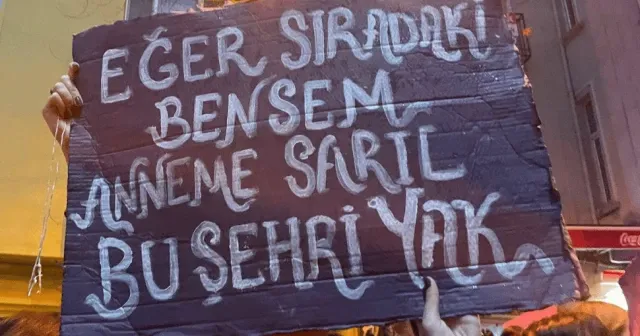 EĞER SIRADAKİ
BENSEM
ANNEME SARIL
BU ŞEHRİ YAK